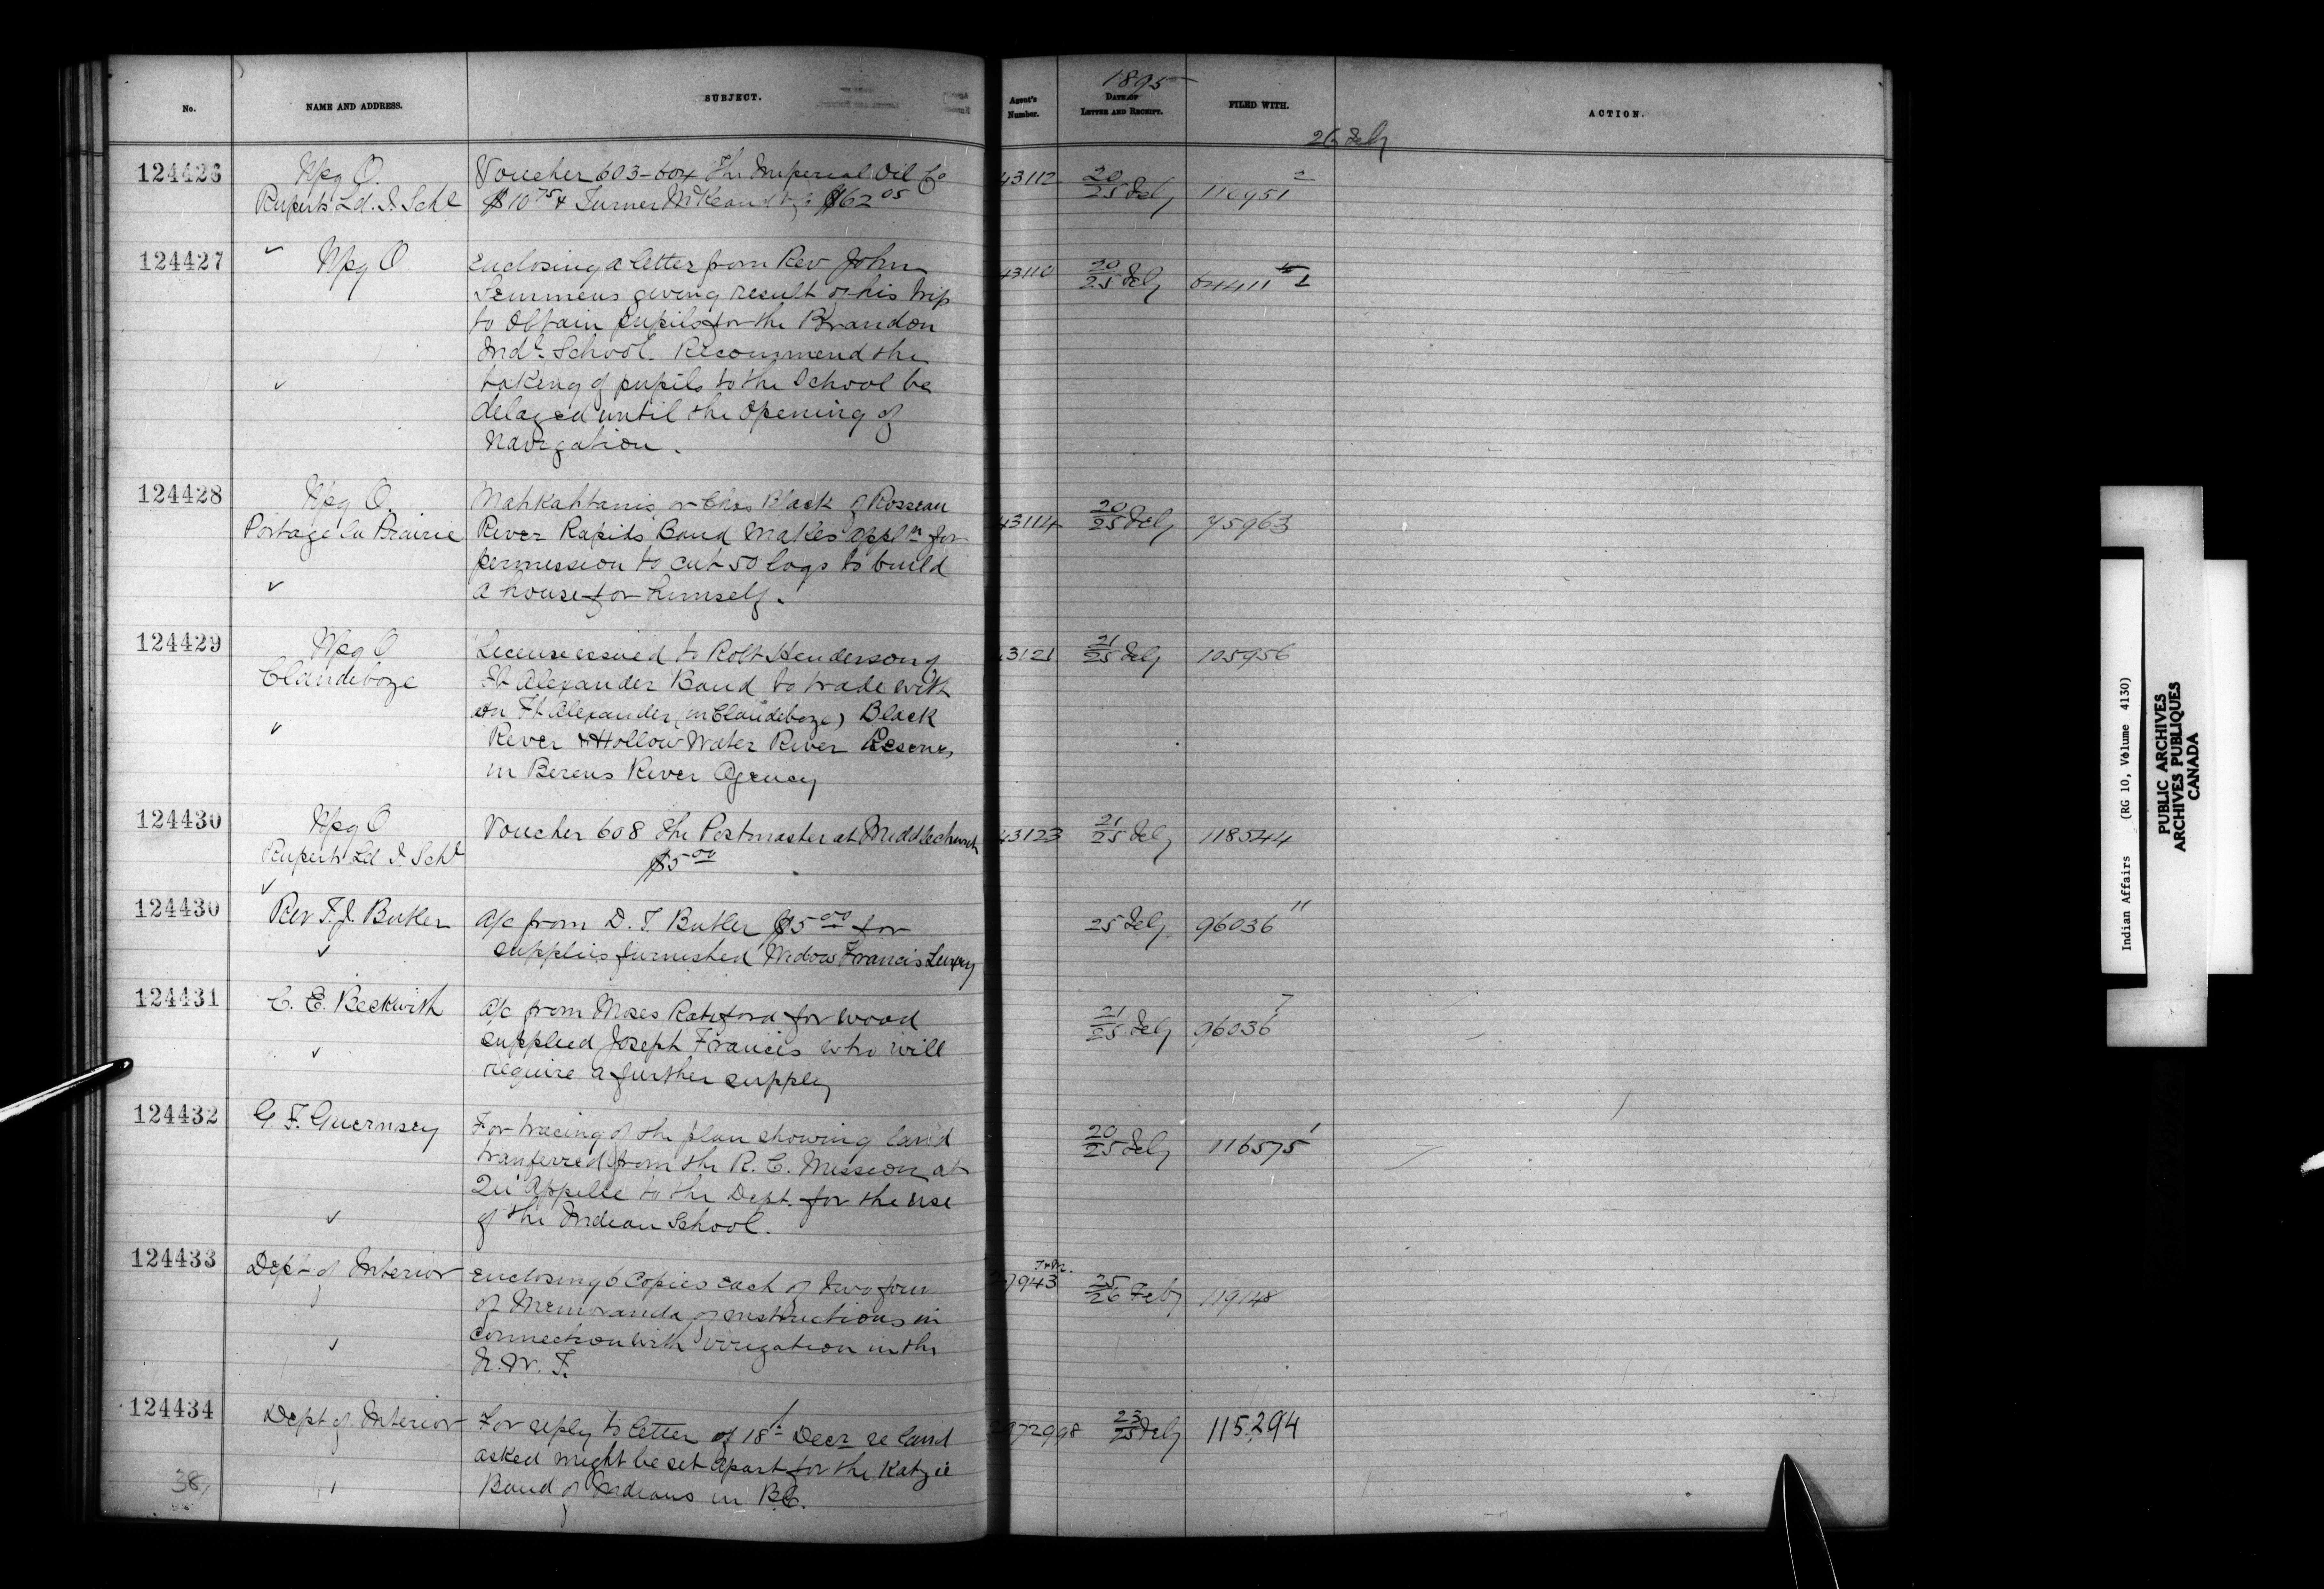 No.
NAME AND ADDRESS.
SUBJECT.
Agent's Number.
1895
DATE OF LETTER AND RECEIPT.
FILED WITH.
ACTION.
26 Feby
124426
Wpg O.
Ruperts Ld. I. Schl
Voucher 603-604 The Imperial Oil Co
$10 75 & Turner McKeand & Co $62 05
43112
20
25 Feby
110951 2
124427
Wpg O
Enclosing a letter from Rev John
Semmens giving result of his trip
to obtain pupils for the Brandon
Indl. School. Recommend the
taking of pupils to the School be
delayed until the opening of
Navigation.
43110
20
25 Feby
64411 1
124428
Wpg O.
Portage la Prairie
Mahkahtanis or Chas Black of Rosseau
River Rapids Band makes appln for
permission to cut 50 logs to build
a house for himself.
43114
20
25 Feby
75963
124429
Wpg O
Clandeboye
License issued to Robt Henderson of
Ft Alexander Band to trade with
on Ft Alexander (in Clandeboye) Black
River & Hollow Water River Reserves
in Berens River Agency
3121
21
25 Feby
105956
124430
Wpg O
Ruperts Ld I. Schl
Voucher 608 The Postmaster at Middlechurch
$5 00
43123
21
25 Feby
118544
124430
Rev T. J. Butler
a/c from D. T. Butler $5 00 for
supplies furnished Widow Francis Luxey
25 Feby
96036 11
124431
C. E. Beckwith
a/c from Moses Rateford for wood
supplied Joseph Francis who will
require a further supply
21
25 Feby
96036 7
124432
G. F. Guernsey
For tracing of the plan showing land
tranferred from the R. C. Mission at
Qu'Appelle to the Dept. for the use
of the Indian School.
20
25 Feby
116575 1
124433
Dept of Interior
Enclosing 6 Copies each of two form
of Memoranda of instructions in
connection with irrigation in the
N. W. T.
7943
25
26 Feby
119148
124434
Dept of Interior
For reply to letter of 18th Decr re land
asked might be set apart for the Katzie
Band of Indians in B.C.
372998
23
25 Feby
115294
38
Indian Affairs (RG 10, Volume 4130)
PUBLIC ARCHIVES
ARCHIVES PUBLIQUES
CANADA